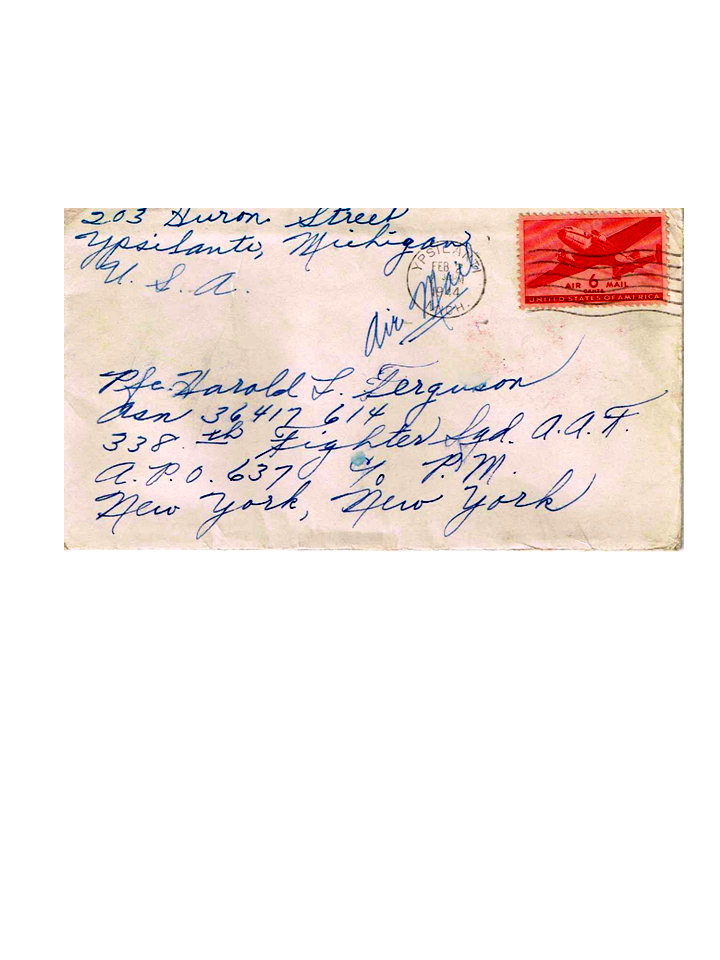 203 Huron Street
Ypsilanti, Michigan
U. S. A.
YPSILANTI
FEB
1944
MICH.
Air Mail
AIR 6 MAIL
CENTS
UNITED STATES OF AMERICA
Pfc. Harold L. Ferguson
Asn 36417614
338th Fighter Sqd. A.A.F.
A.P.O. 637 % P.M.
New York, New York